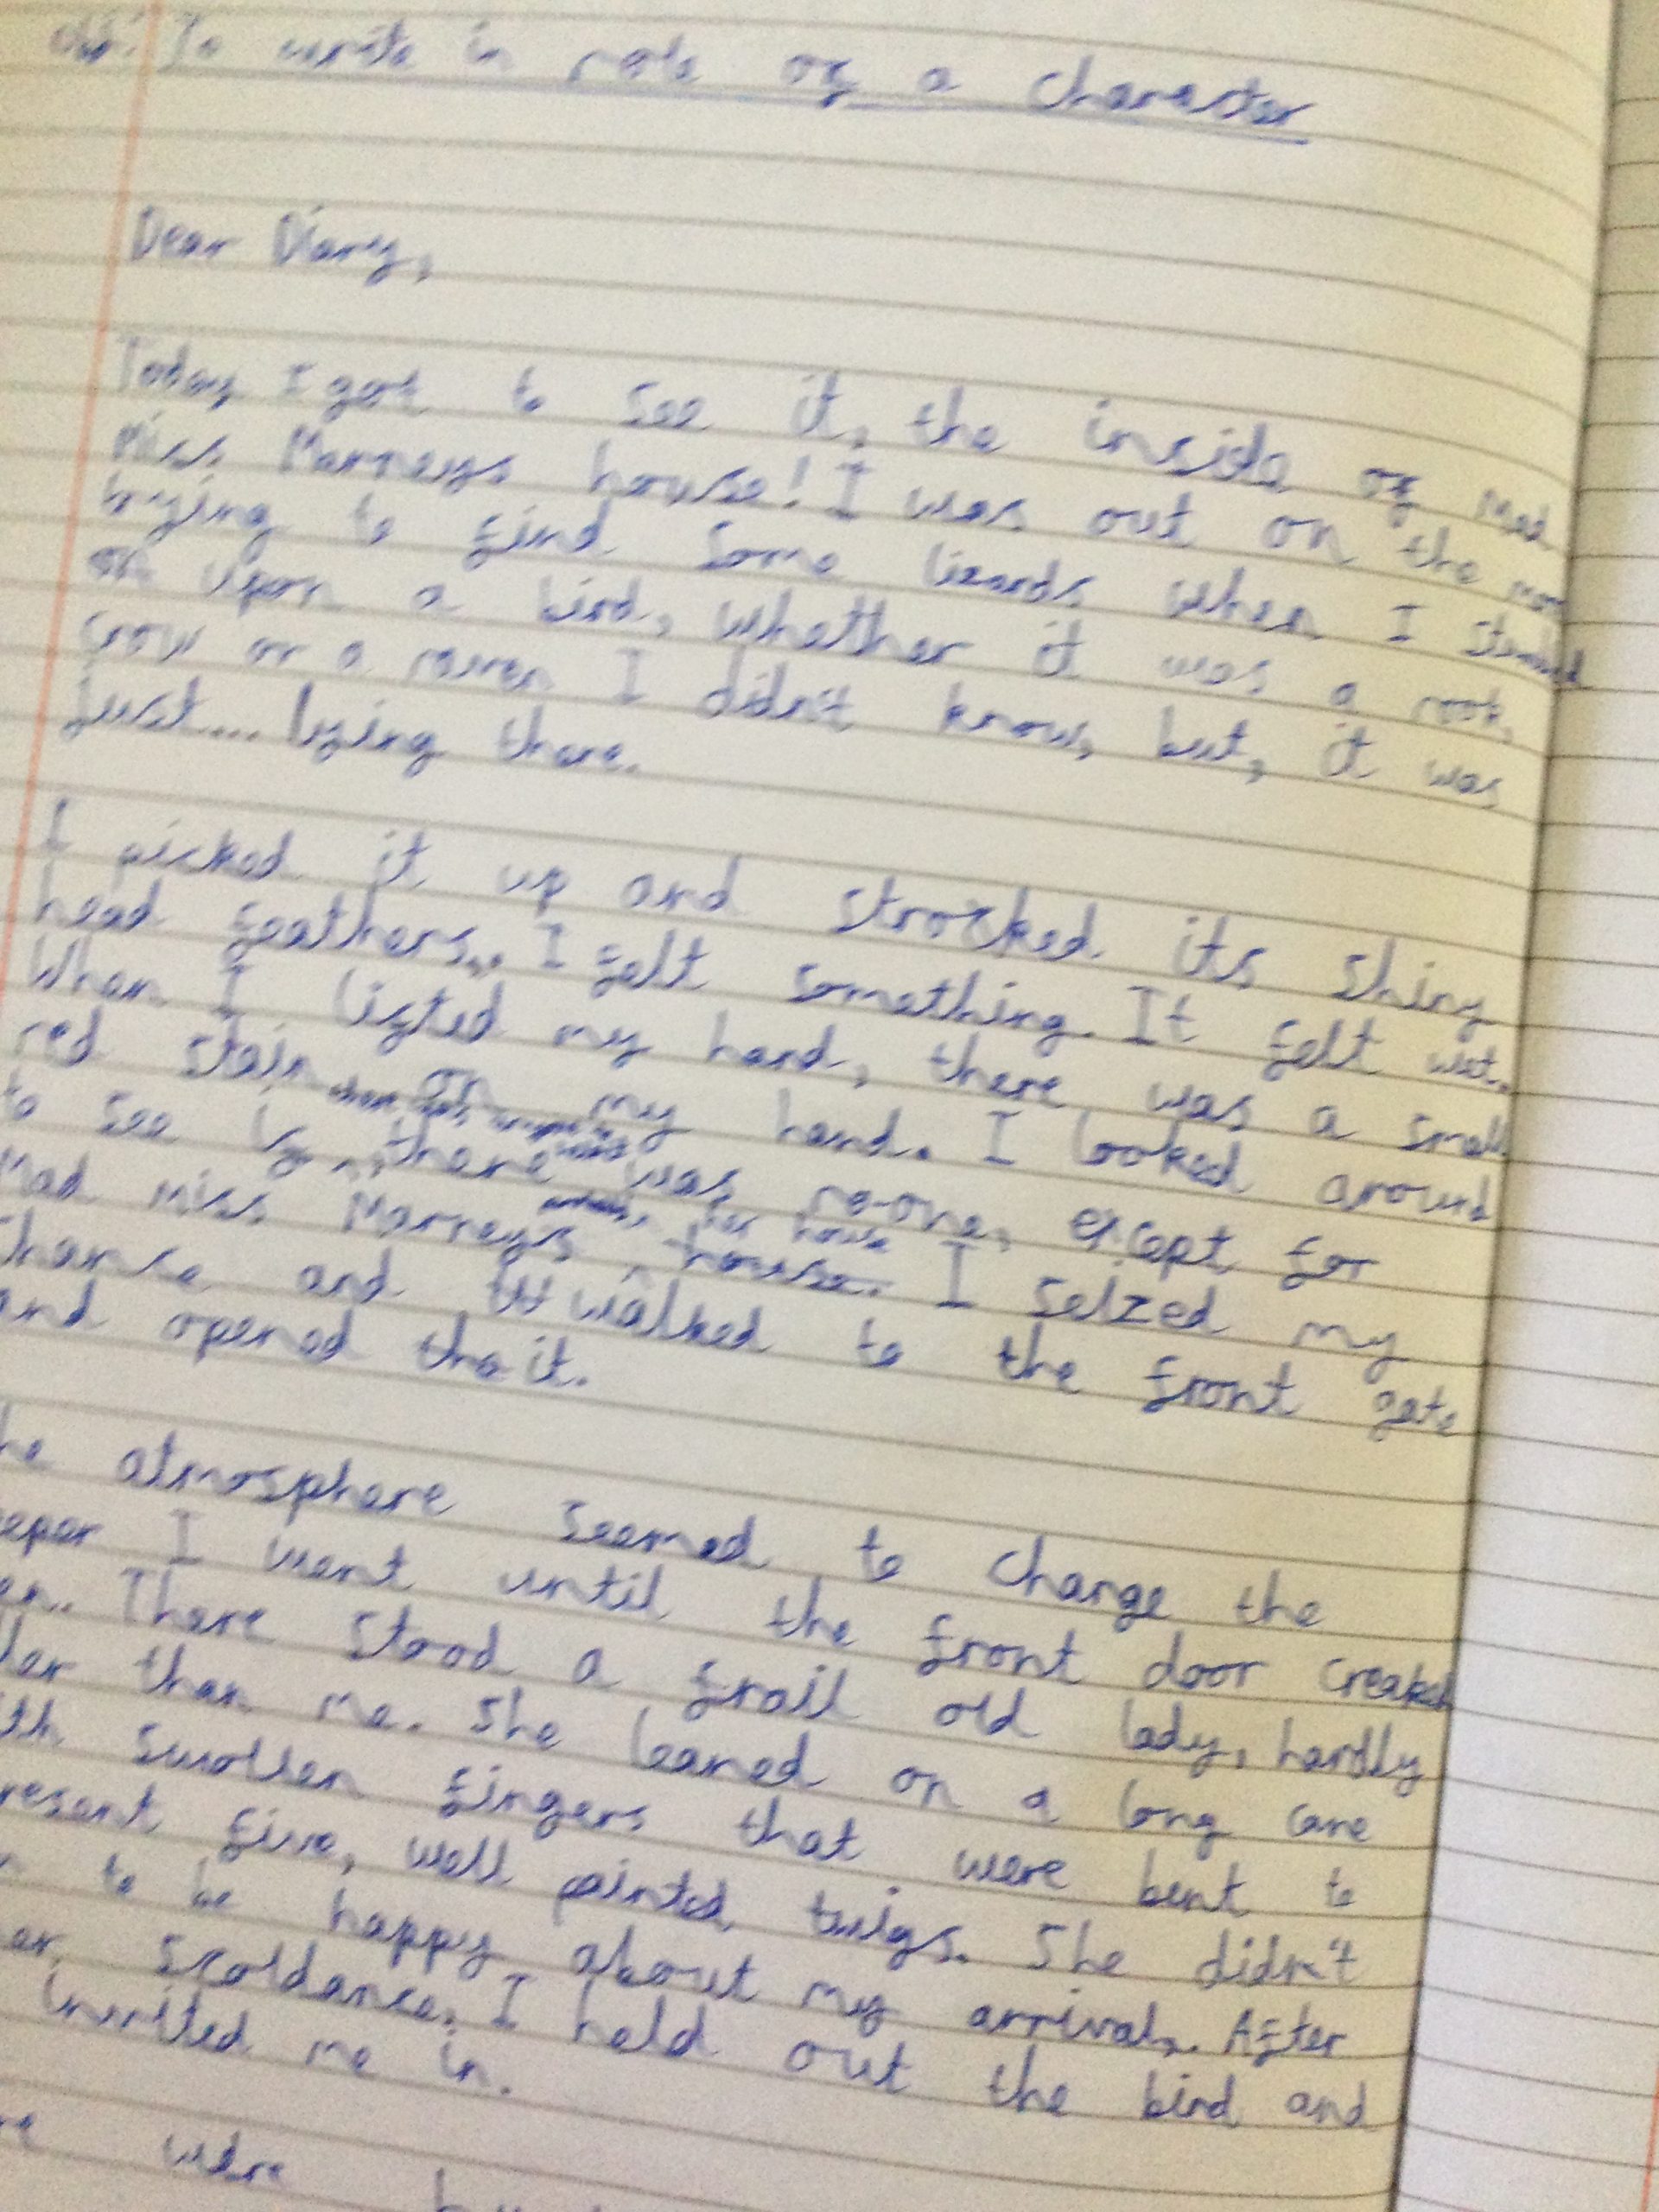 To write in role of a character
Dear Diary,
Today I got to see it, the inside of Mad
Miss Marneys house! I was out on the
trying to find some lizards when I
upon a bird, whether it was a rook,
crow or a raven I didn't know, but, it was
just... lying there.
I picked it up and stroked its shiny
head feathers... I felt something. It felt wet.
When I lifted my hand, there was a small
red stain on my hand. I looked around
to see there was no-one, except for
Mad Miss Marneys her house house. I seized my
chance and walked to the front gate
and opened it.
he atmosphere seemed to change the
eeper I went until the front door creaked
en. There stood a frail old lady, hardly
ller than me. She leaned on a long cane
ith swollen fingers that were bent to
resent five, well painted twigs. She didn't
to be happy about my arrival. After
er scoldance, I held out the bird and
invited me in.
were